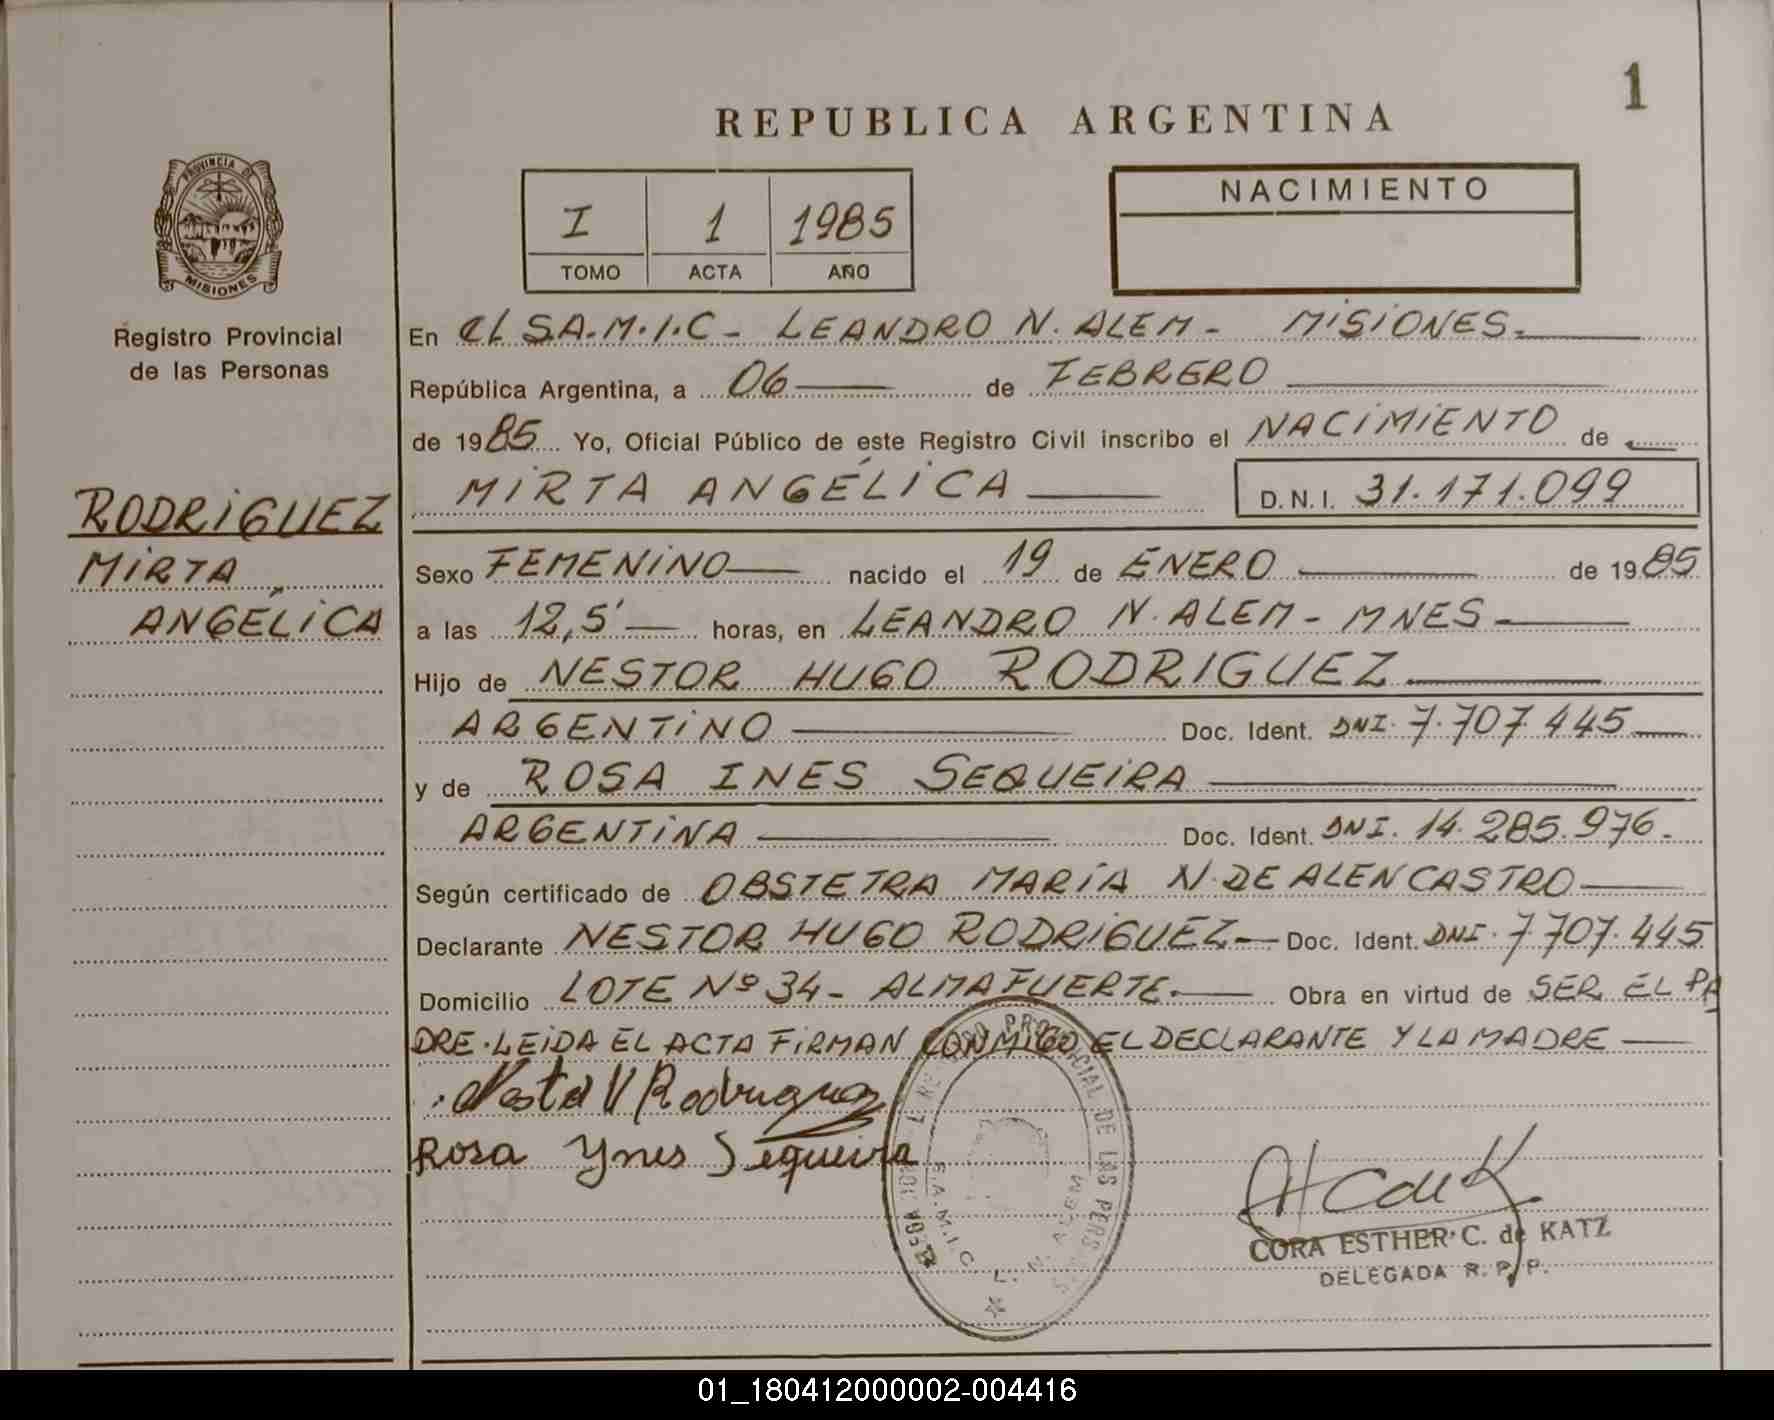 1
REPUBLICA ARGENTINA
PROVINCIA DE
MISIONES
Registro Provincial
de las Personas
I 1 1985
TOMO ACTA AÑO
NACIMIENTO
En EL S.A.M.I.C - LEANDRO N. ALEM - MISIONES.
República Argentina, a 06 de FEBRERO
de 1985 Yo, Oficial Público de este Registro Civil inscribo el NACIMIENTO de
MIRTA ANGÉLICA D.N.I. 31.171.099
RODRIGUEZ
MIRTA
ANGÉLICA
Sexo FEMENINO nacido el 19 de ENERO de 1985
a las 12,5' horas, en LEANDRO N. ALEM - MNES
Hijo de NESTOR HUGO RODRIGUEZ
ARGENTINO Doc. Ident. DNI. 7.707.445
y de ROSA INES SEQUEIRA
ARGENTINA Doc. Ident. DNI. 14.285.976.
Según certificado de OBSTETRA MARÍA N. DE ALENCASTRO
Declarante NESTOR HUGO RODRIGUEZ Doc. Ident. DNI. 7.707.445
Domicilio LOTE Nº 34 - ALMAFUERTE. Obra en virtud de SER EL PA
DRE. LEIDA EL ACTA FIRMAN CONMIGO EL DECLARANTE Y LA MADRE
Rodriguez
Rosa Ynes Sequeira
PROVINCIAL DE LAS PERS
S.A.M.I.C. L. N. ALEM
CORA ESTHER C. de KATZ
DELEGADA R. P. P.
01_180412000002-004416